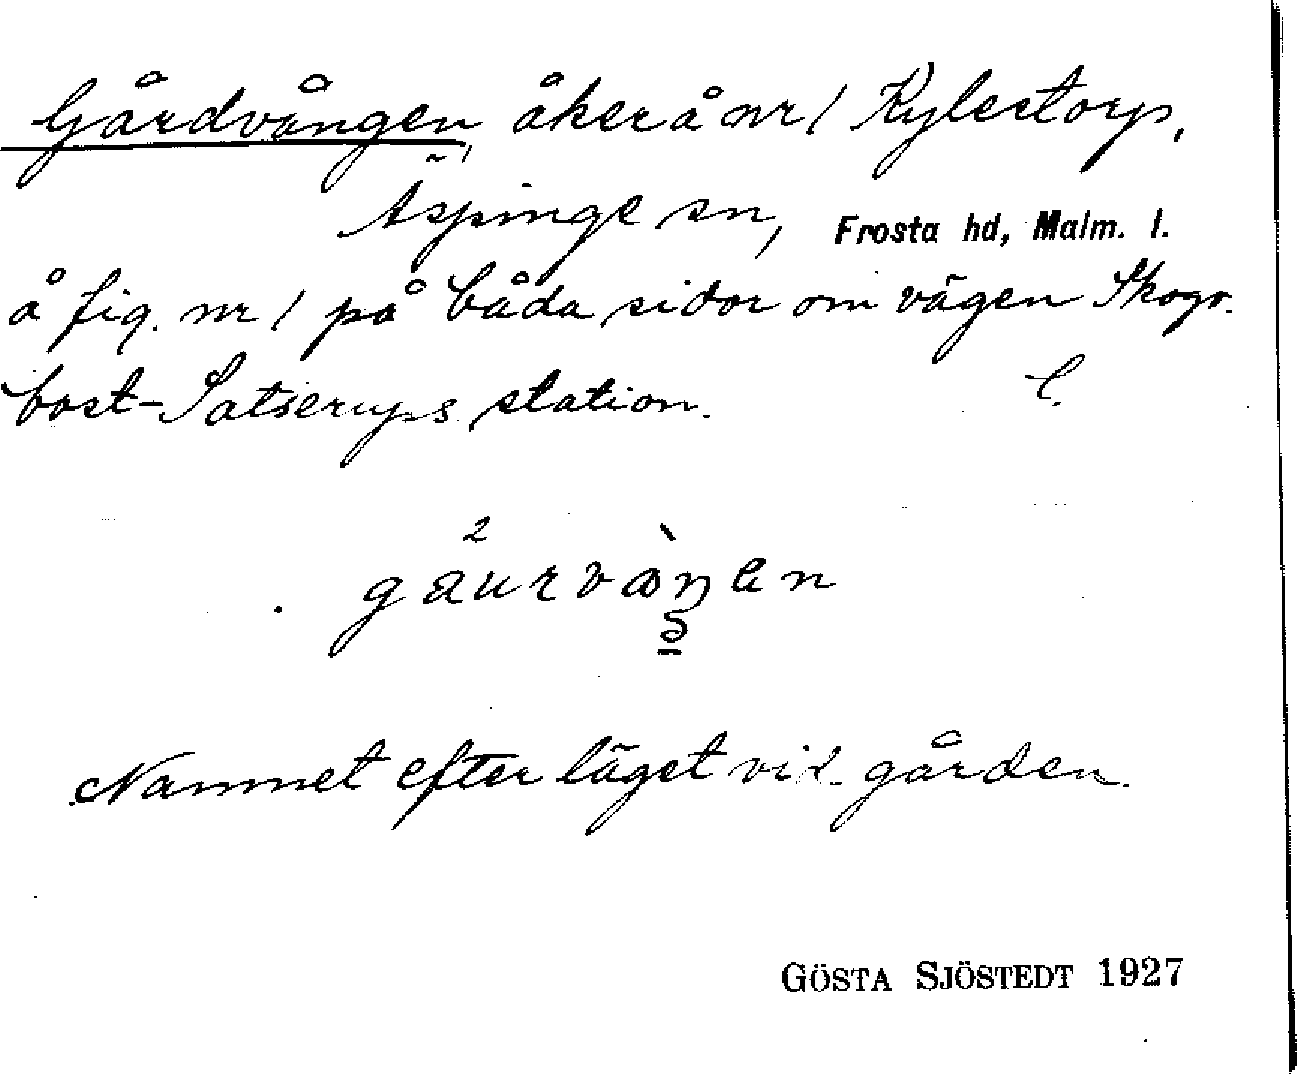 Gårdvången, åker å nr 1 Kylestorp,
Äspinge sn, Frosta hd, Malm. l.
å fig. nr 1 på båda sidor om vägen Skogs-
bost-Satserups station. C.
gåurvàŋen
Namnet efter läget vid gården.
GÖSTA SJÖSTEDT 1927